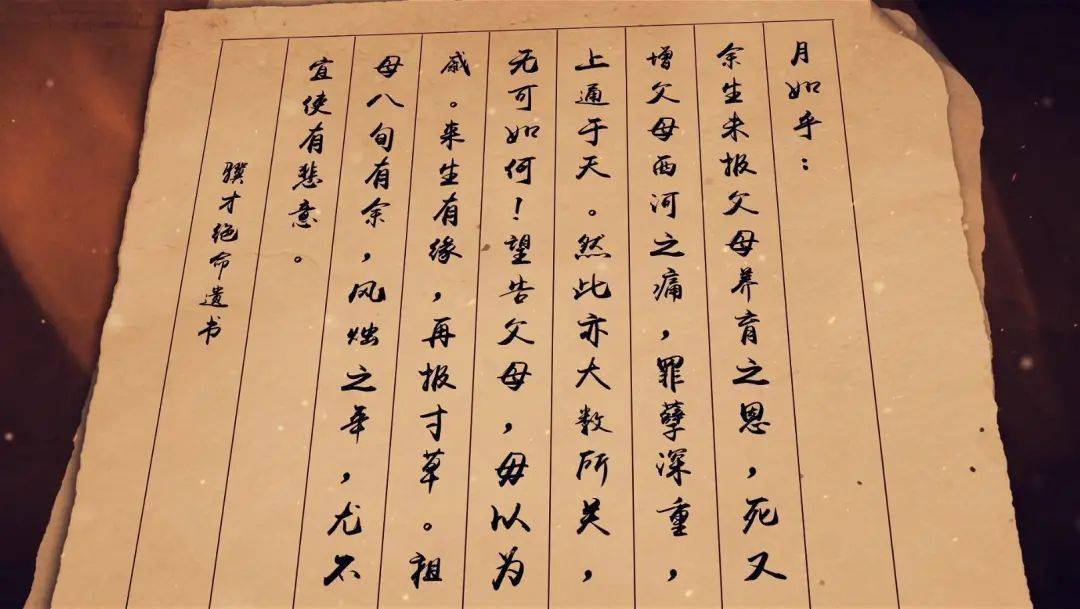 月如乎：
余生未报父母养育之恩，死又
增父母西河之痛，罪孽深重，
上通于天。然此亦大数所关，
无可如何！望告父母，毋以为
感。来生有缘，再报寸草。祖
母八旬有余，风烛之年，尤不
宜使有悲意。
骥才绝命遗书